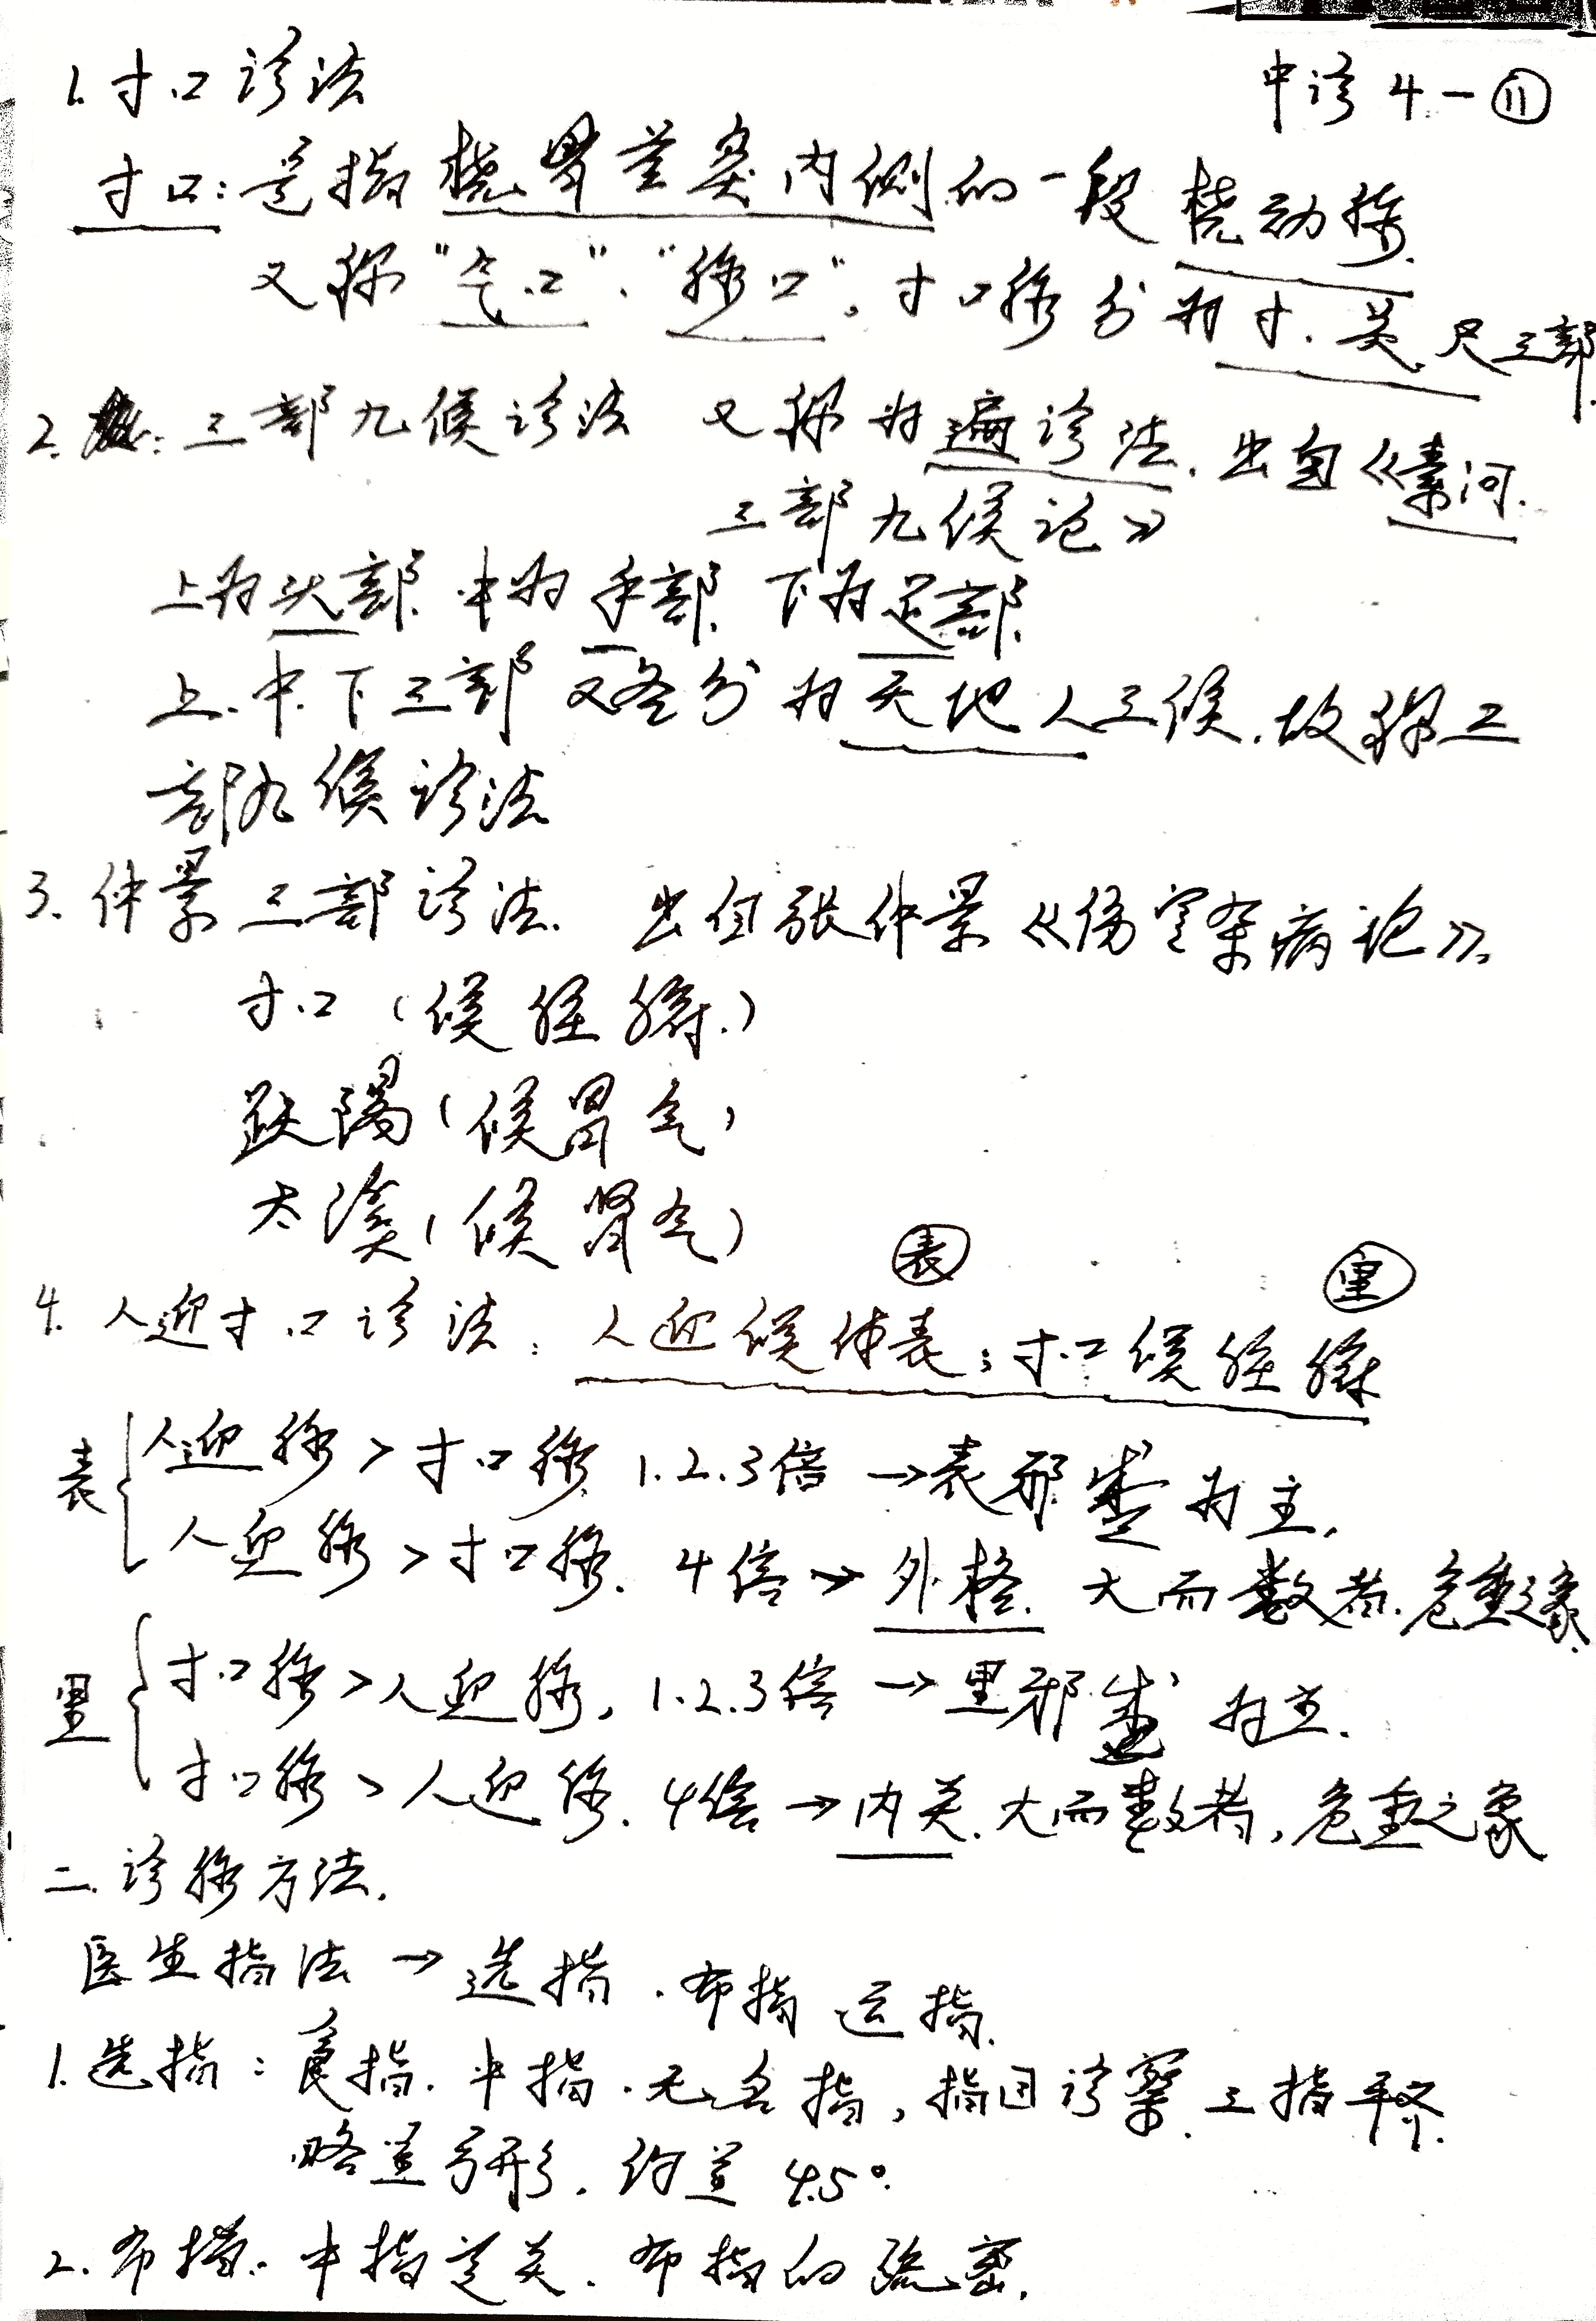 中诊4-⑪
1.寸口诊法
寸口:是指桡骨茎突内侧的一段桡动脉.
又称"气口"、"脉口"。寸口脉分为寸.关.尺三部.
2.:三部九候诊法 又称为遍诊法.出自《素问.
三部九候论》
上为头部.中为手部.下为足部.
上.中.下三部又各分为天地人三候.故称三
部九候诊法
3.仲景三部诊法.出自张仲景《伤寒杂病论》.
寸口(候脏腑.)
趺阳(候胃气)
太溪(候肾气)
表 里
4.人迎寸口诊法:人迎候体表;寸口候脏腑
表 人迎脉>寸口脉 1.2.3倍→表邪盛为主.
人迎脉>寸口脉.4倍→外格.大而数者.危重之象.
里 寸口脉>人迎脉,1.2.3倍→里邪盛为主.
寸口脉>人迎脉.4倍→内关.大而数者,危重之象
二.诊脉方法.
医生指法→选指.布指 运指.
1.选指:食指.中指.无名指,指目诊察.三指平齐.
略呈弓形.约呈45°.
2.布指.中指定关.布指的疏密.